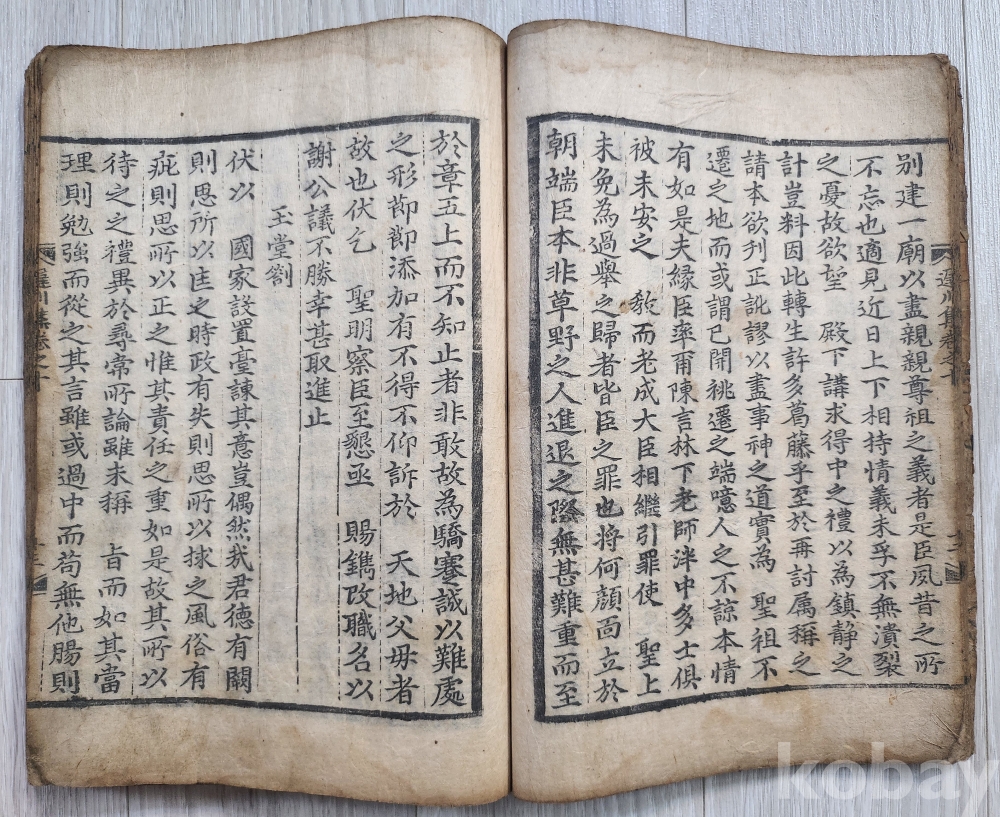 别建一廟以盡親親尊祖之義者是臣夙昔之所
不忘也適見近日上下相持情義未孚不無潰裂
之憂故欲望 殿下講求得中之禮以為鎮静之
計豈料因此轉生許多葛藤乎至於再討属稱之
請本欲刋正訛謬以盡事神之道實為 聖祖不
遷之地而或謂已開祧遷之端噫人之不諒本情
有如是夫緣臣率爾陳言林下老師泮中多士俱
被未安之 敎而老成大臣相繼引罪使 聖上
未免為過舉之歸者皆臣之罪也將何顔面立於
朝端臣本非草野之人進退之際無甚難重而至
於章五上而不知止者非敢故為驕蹇誠以難處
之形節節添加有不得不仰訴於 天地父母者
故也伏乞 聖明察臣至懇亟 賜鐫改職名以
謝公議不勝幸甚取進止
玉堂劄
伏以 國家設置臺諫其意豈偶然我君德有闕
則思所以匡之時政有失則思所以捄之風俗有
疵則思所以正之惟其責任之重如是故其所以
待之之禮異於尋常所論雖未稱 旨而如其當
理則勉強而從之其言雖或過中而苟無他腸則
遲川集卷之十
kobay